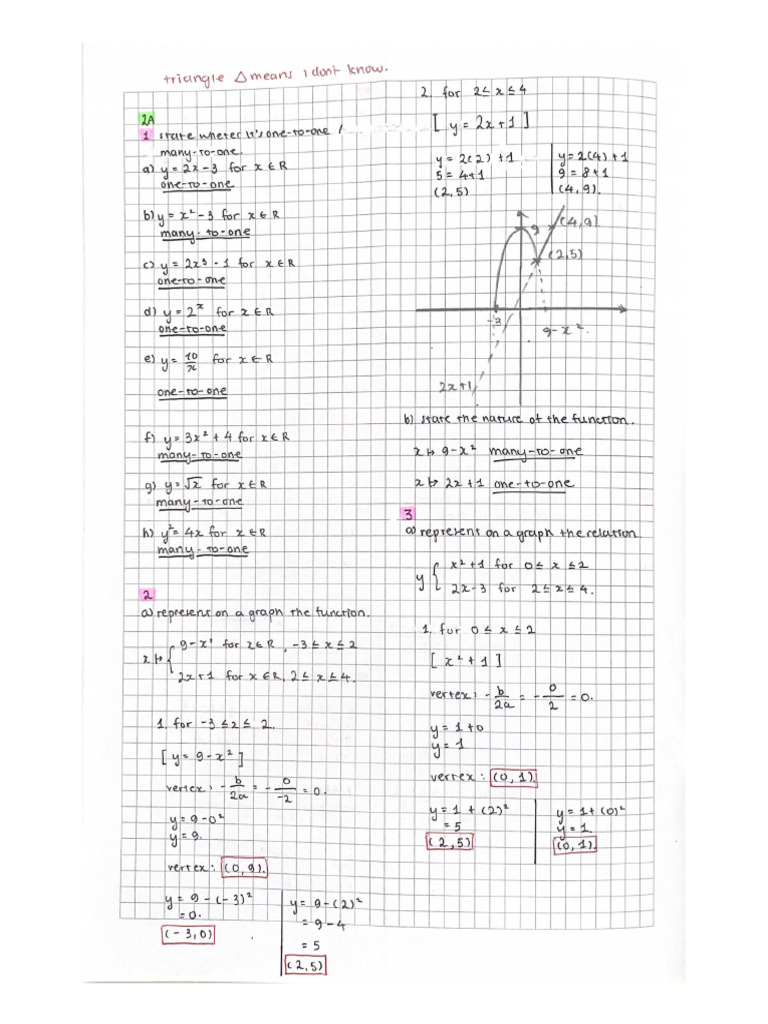 triangle △ means i dont know.
2A
1 state wheter it's one-to-one /
many-to-one.
a) y = 2x - 3 for x ∈ R
one-to-one
b) y = x² - 3 for x ∈ R
many-to-one
c) y = 2x³ - 1 for x ∈ R
one-to-one
d) y = 2ˣ for x ∈ R
one-to-one
e) y = 10/x for x ∈ R
one-to-one
f) y = 3x² + 4 for x ∈ R
many-to-one
g) y = √x for x ∈ R
many-to-one
h) y² = 4x for x ∈ R
many-to-one
2
a) represent on a graph the function.
x ↦ { 9 - x² for x ∈ R, -3 ≤ x ≤ 2
2x + 1 for x ∈ R, 2 ≤ x ≤ 4.
1. for -3 ≤ 2 ≤ 2.
[ y = 9 - x² ]
vertex: - b/2a = - 0/-2 = 0.
y = 9 - 0²
y = 9.
vertex: (0, 9).
y = 9 - (-3)²
= 0.
(-3, 0)
y = 9 - (2)²
= 9 - 4
= 5
(2, 5)
2. for 2 ≤ x ≤ 4
[ y = 2x + 1 ]
y = 2(2) + 1
5 = 4 + 1
(2, 5)
y = 2(4) + 1
9 = 8 + 1
(4, 9).
9
(4, 9)
(2, 5)
-3
9 - x².
2x + 1
b) state the nature of the function.
x ↦ 9 - x² many-to-one
x ↦ 2x + 1 one-to-one
3
a) represent on a graph the relation
y { x² + 1 for 0 ≤ x ≤ 2
2x - 3 for 2 ≤ x ≤ 4.
1. for 0 ≤ x ≤ 2
[ x² + 1 ]
vertex: - b/2a = - 0/2 = 0.
y = 1 + 0
y = 1
vertex: (0, 1).
y = 1 + (2)²
= 5
(2, 5)
y = 1 + (0)²
y = 1
(0, 1).